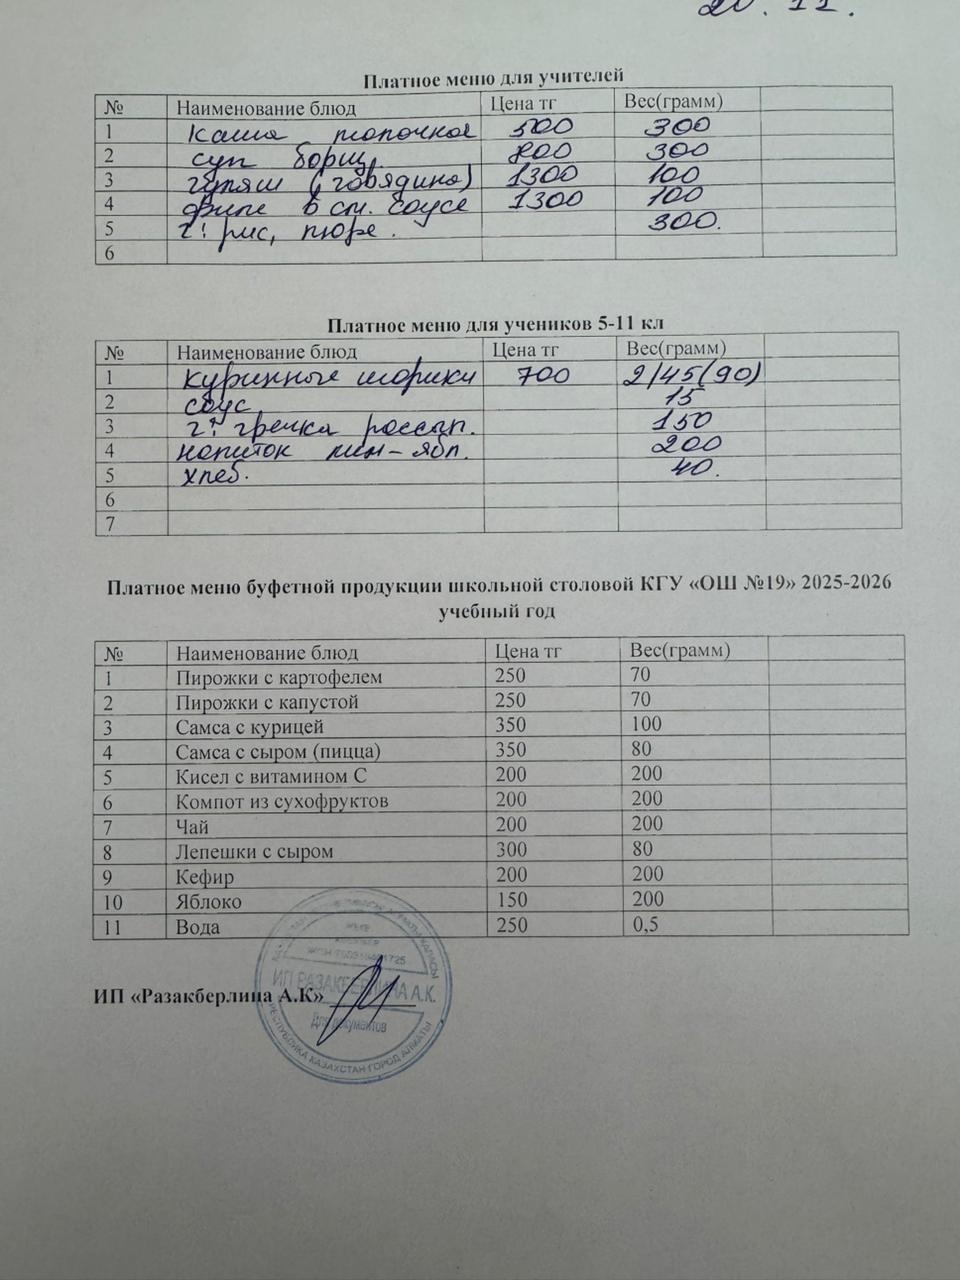 20. 11.
Платное меню для учителей
№ Наименование блюд Цена тг Вес(грамм)
1 каша молочная 500 300
2 суп борщ. 800 300
3 гуляш (говядина) 1300 100
4 филе в см. соусе 1300 100
5 г: рис, пюре. 300.
6
Платное меню для учеников 5-11 кл
№ Наименование блюд Цена тг Вес(грамм)
1 куринные шарики 700 2/45(90)
2 соус 15
3 г: гречка рассып. 150
4 напиток лим-ябл. 200
5 хлеб. 40.
6
7
Платное меню буфетной продукции школьной столовой КГУ «ОШ №19» 2025-2026
учебный год
№ Наименование блюд Цена тг Вес(грамм)
1 Пирожки с картофелем 250 70
2 Пирожки с капустой 250 70
3 Самса с курицей 350 100
4 Самса с сыром (пицца) 350 80
5 Кисел с витамином С 200 200
6 Компот из сухофруктов 200 200
7 Чай 200 200
8 Лепешки с сыром 300 80
9 Кефир 200 200
10 Яблоко 150 200
11 Вода 250 0,5
ИП «Разакберлина А.К»
ИП РАЗАКБЕРЛИНА А.К.
Для документов
РЕСПУБЛИКА КАЗАХСТАН ГОРОД АЛМАТЫ